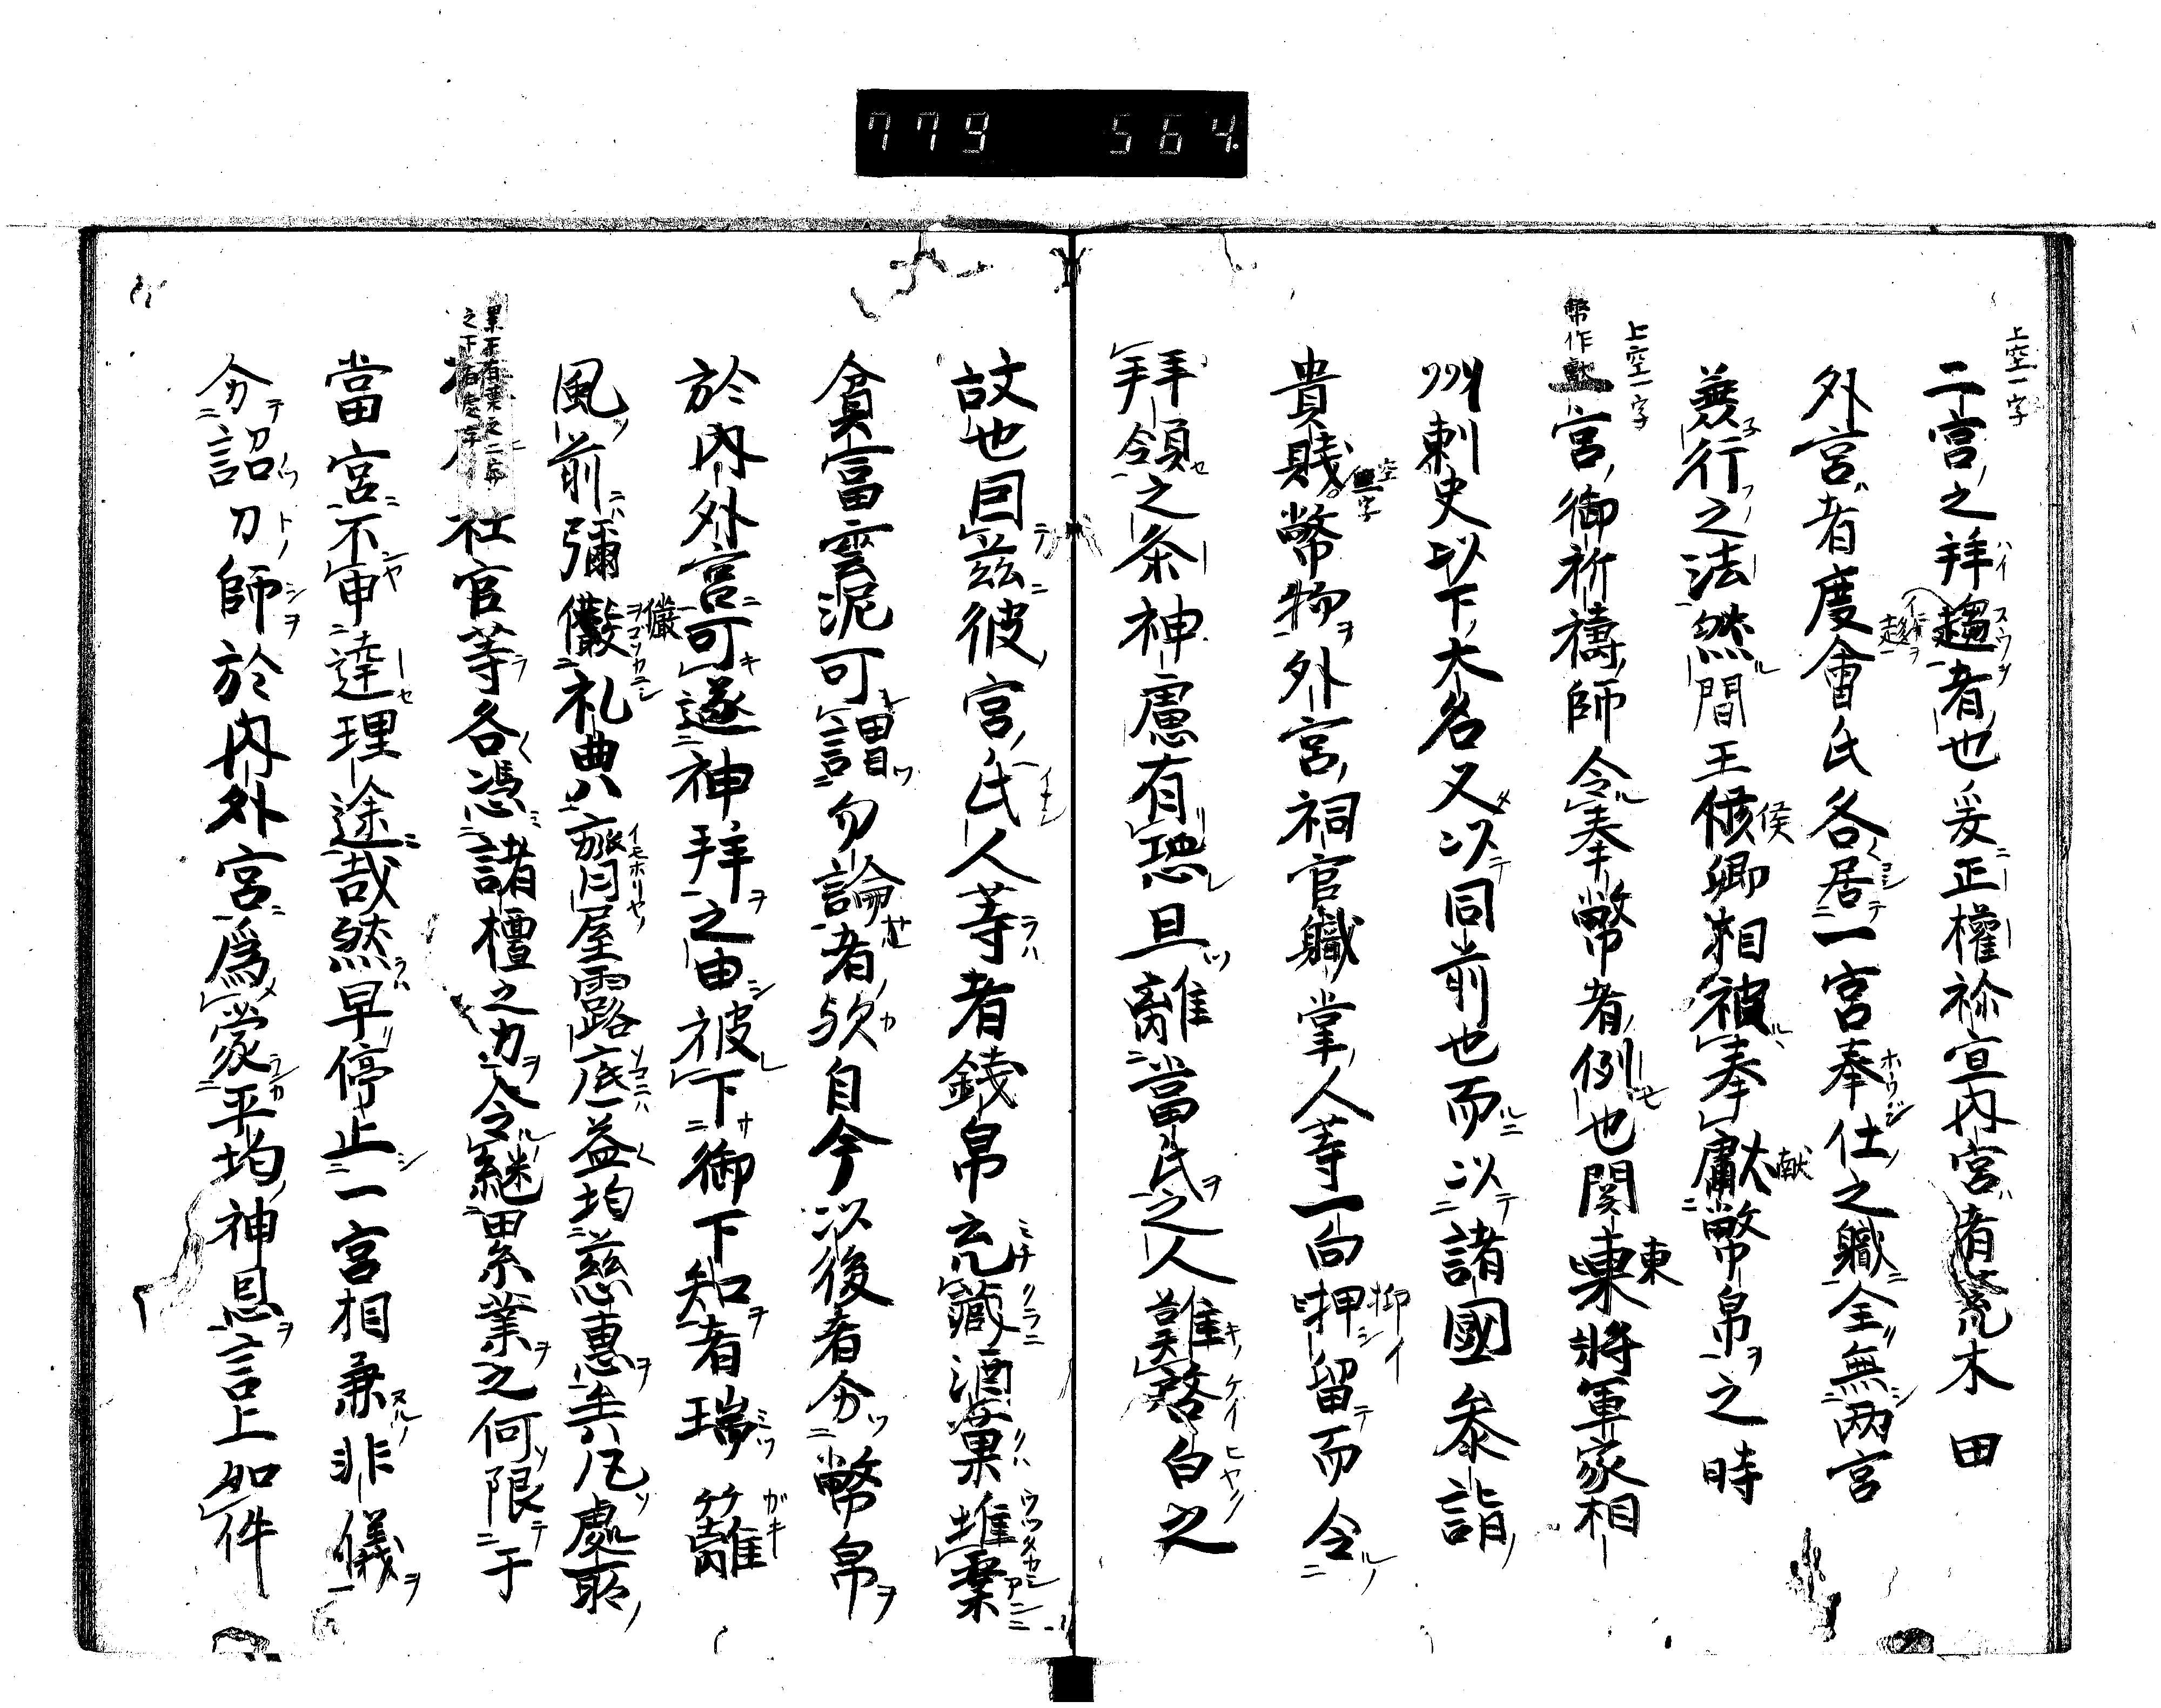 779 564.
上空一字
二宮之拝趨者也爰正權祢宜内宮者荒木田
外宮者度會氏各居一宮奉仕之職全無两宮
兼行之法然間王侯卿相被奉獻幣帛之時
上空一字
二宮御祈禱師令奉幣者例也関東將軍家相
州刺史以下大名又以同前也而以諸國参詣
貴賤幣物外宮祠官職掌人等一向押留而令
拝領之条神慮有恐且離當氏之人難啓白之
故也因茲彼宮氏人等者錢帛充藏酒菓堆案
貧富雲泥可謂勿論者欤自今以後者分幣帛
於内外宮可遂神拝之由被下御下知者瑞籬
風前彌儼礼典八旅月屋露底益均慈惠矣凡處取
社官等各憑諸檀之力令継累業之何限于
當宮不申達理途哉然早停止一宮相兼非儀
分詔刀師於内外宮爲蒙平均神恩言上如件